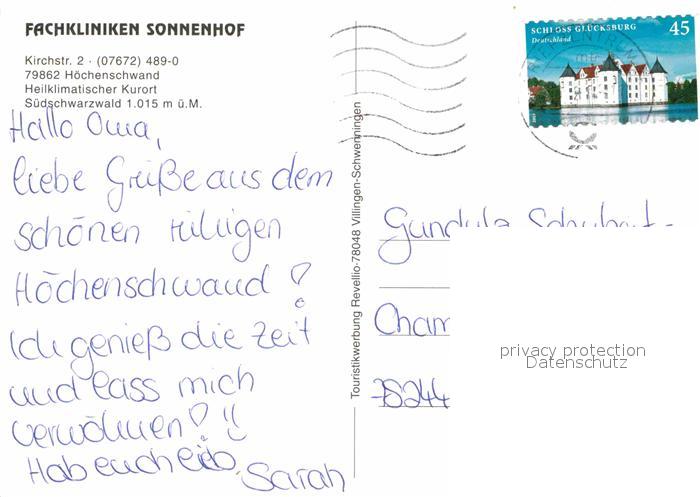 FACHKLINIKEN SONNENHOF
Kirchstr. 2 · (07672) 489-0
79862 Höchenschwand
Heilklimatischer Kurort
Südschwarzwald 1.015 m ü.M.
Hallo Oma,
liebe Grüße aus dem
schönen
Höchenschwand!
Ich genieß die Zeit
und lass mich
verwöhnen!
Hab euch lieb
Sarah
Touristikwerbung Revellio-78048 Villingen-Schwenningen
SCHLOSS GLÜCKSBURG 45
Deutschland
Gundula Schubert-
Char
78244
privacy protection
Datenschutz